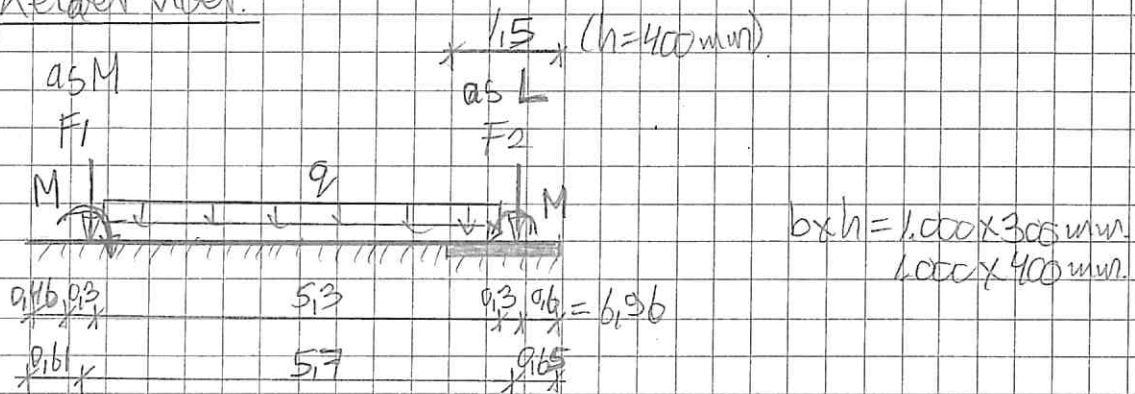 Kelder vloer.
1,5 (h=400mm)
as M
as L
F1
F2
M
q
M
bxh = 1.000x300mm.
1.000x400mm.
0,46 0,3 5,3 0,3 0,6 = 6,96
0,61 5,7 0,65